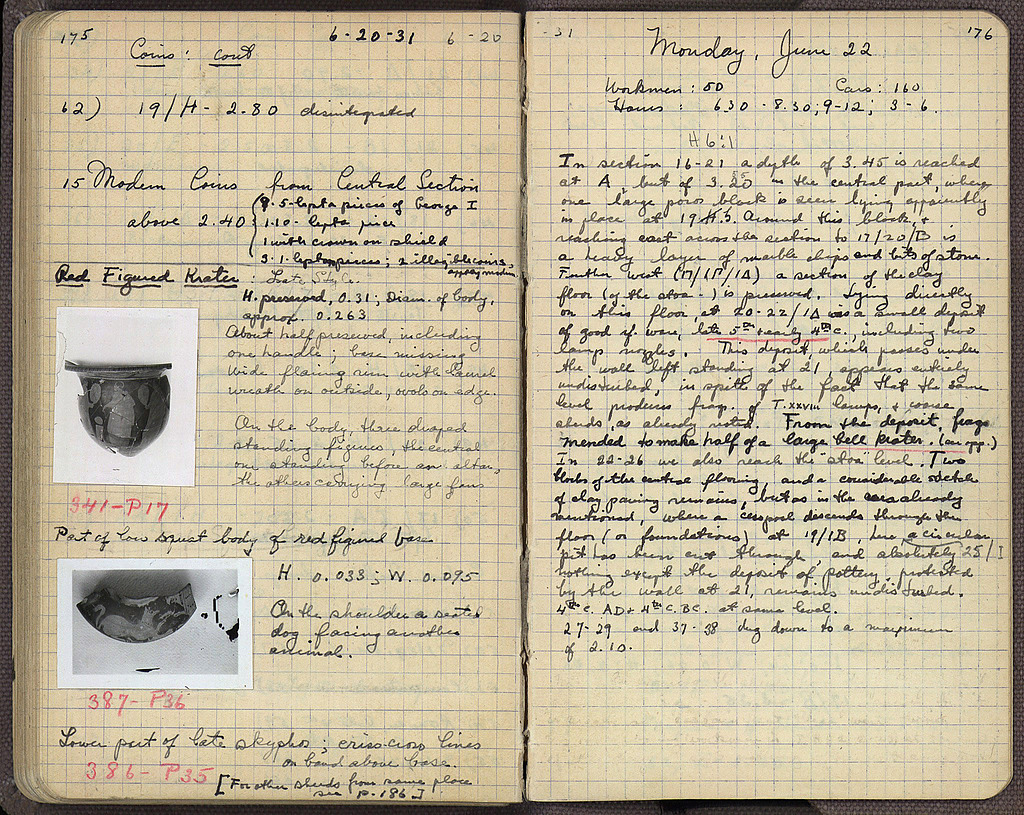 175
6-20-31
6-20
Coins: cont
62) 19/H - 2.80 disintegrated
15 Modern Coins from Central Section
above 2.40
8. 5-lepta pieces of George I
1. 10-lepta piece
1 with crown on shield
3. 1-lepta pieces; 2 illegible coins,
Red Figured Krater: Late Style.
H. preserved, 0.31; Diam. of body,
approx. 0.263
About half preserved, including
one handle; base missing
Wide flaring rim with laurel
wreath on outside, ovolo on edge.
On the body, three draped
standing figures, the central
one standing before an altar,
the others carrying large fans
341-P17
Part of low squat body of red figured vase
H. 0.033; W. 0.095
On the shoulder a seated
dog facing another
animal.
387-P36
Lower part of late skyphos; criss-cross lines
on band above base.
386-P35
[For other sherds from same place
see p. 186]
-31
176
Monday, June 22
Workmen: 50 Cars: 160
Hours: 6.30-8.30; 9-12; 3-6.
H 6:1
In section 16-21 a depth of 3.45 is reached
at A, but of 3.20 in the central part, where
one large poros block is seen lying apparently
in place at 19/ Around this block, &
reaching east across the section to 17/20/B is
a heavy layer of marble chips and bits of stone.
Further west (/Γ/A) a section of the clay
floor (of the stoa) is preserved. Lying directly
on this floor, at 20-22/ was a small deposit
of good r.f. ware, late 5th & early 4th c., including two
lamp nozzles. This deposit, which passes under
the wall left standing at 21, appears entirely
undisturbed, in spite of the fact that the same
level produces frag. of T. XXVIII lamps, & coarse
sherds, as already noted. From the deposit, frags.
mended to make half of a large bell krater. (on opp.)
In 22-26 we also reach the "stoa" level. Two
blocks of the central flooring, and a considerable stretch
of clay paving remains, but as in the area already
mentioned, where a cesspool descends through the
floor (or foundations) at 19/B, here a circular
pit has been cut through and absolutely 25/I
nothing except the deposit of pottery, protected
by the wall at 21, remains undisturbed.
4th C. AD & 4th C. BC. at same level.
27-29 and 37-38 dug down to a maximum
of 2.10.